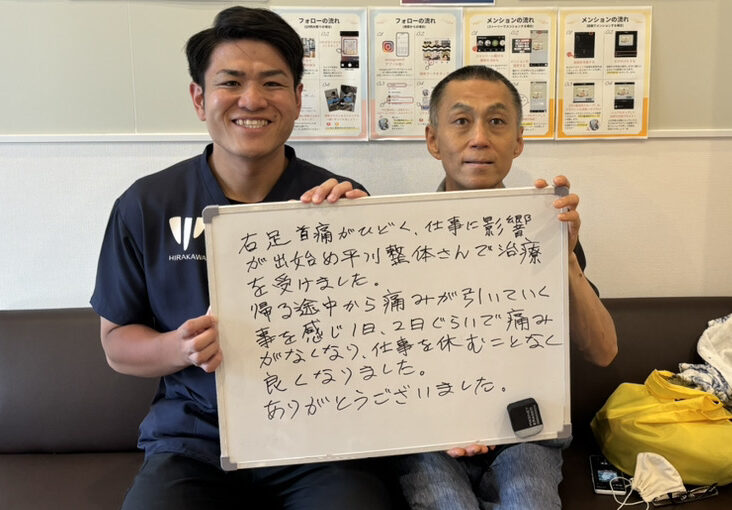 フォローの流れ
フォローの流れ
メンションの流れ
HIRAKAWA
右足首痛がひどく、仕事に影響
が出始め平川整体さんで治療
を受けました。
帰る途中から痛みが引いていく
事を感じ1日、2日ぐらいで痛み
がなくなり、仕事を休むことなく
良くなりました。
ありがとうございました。